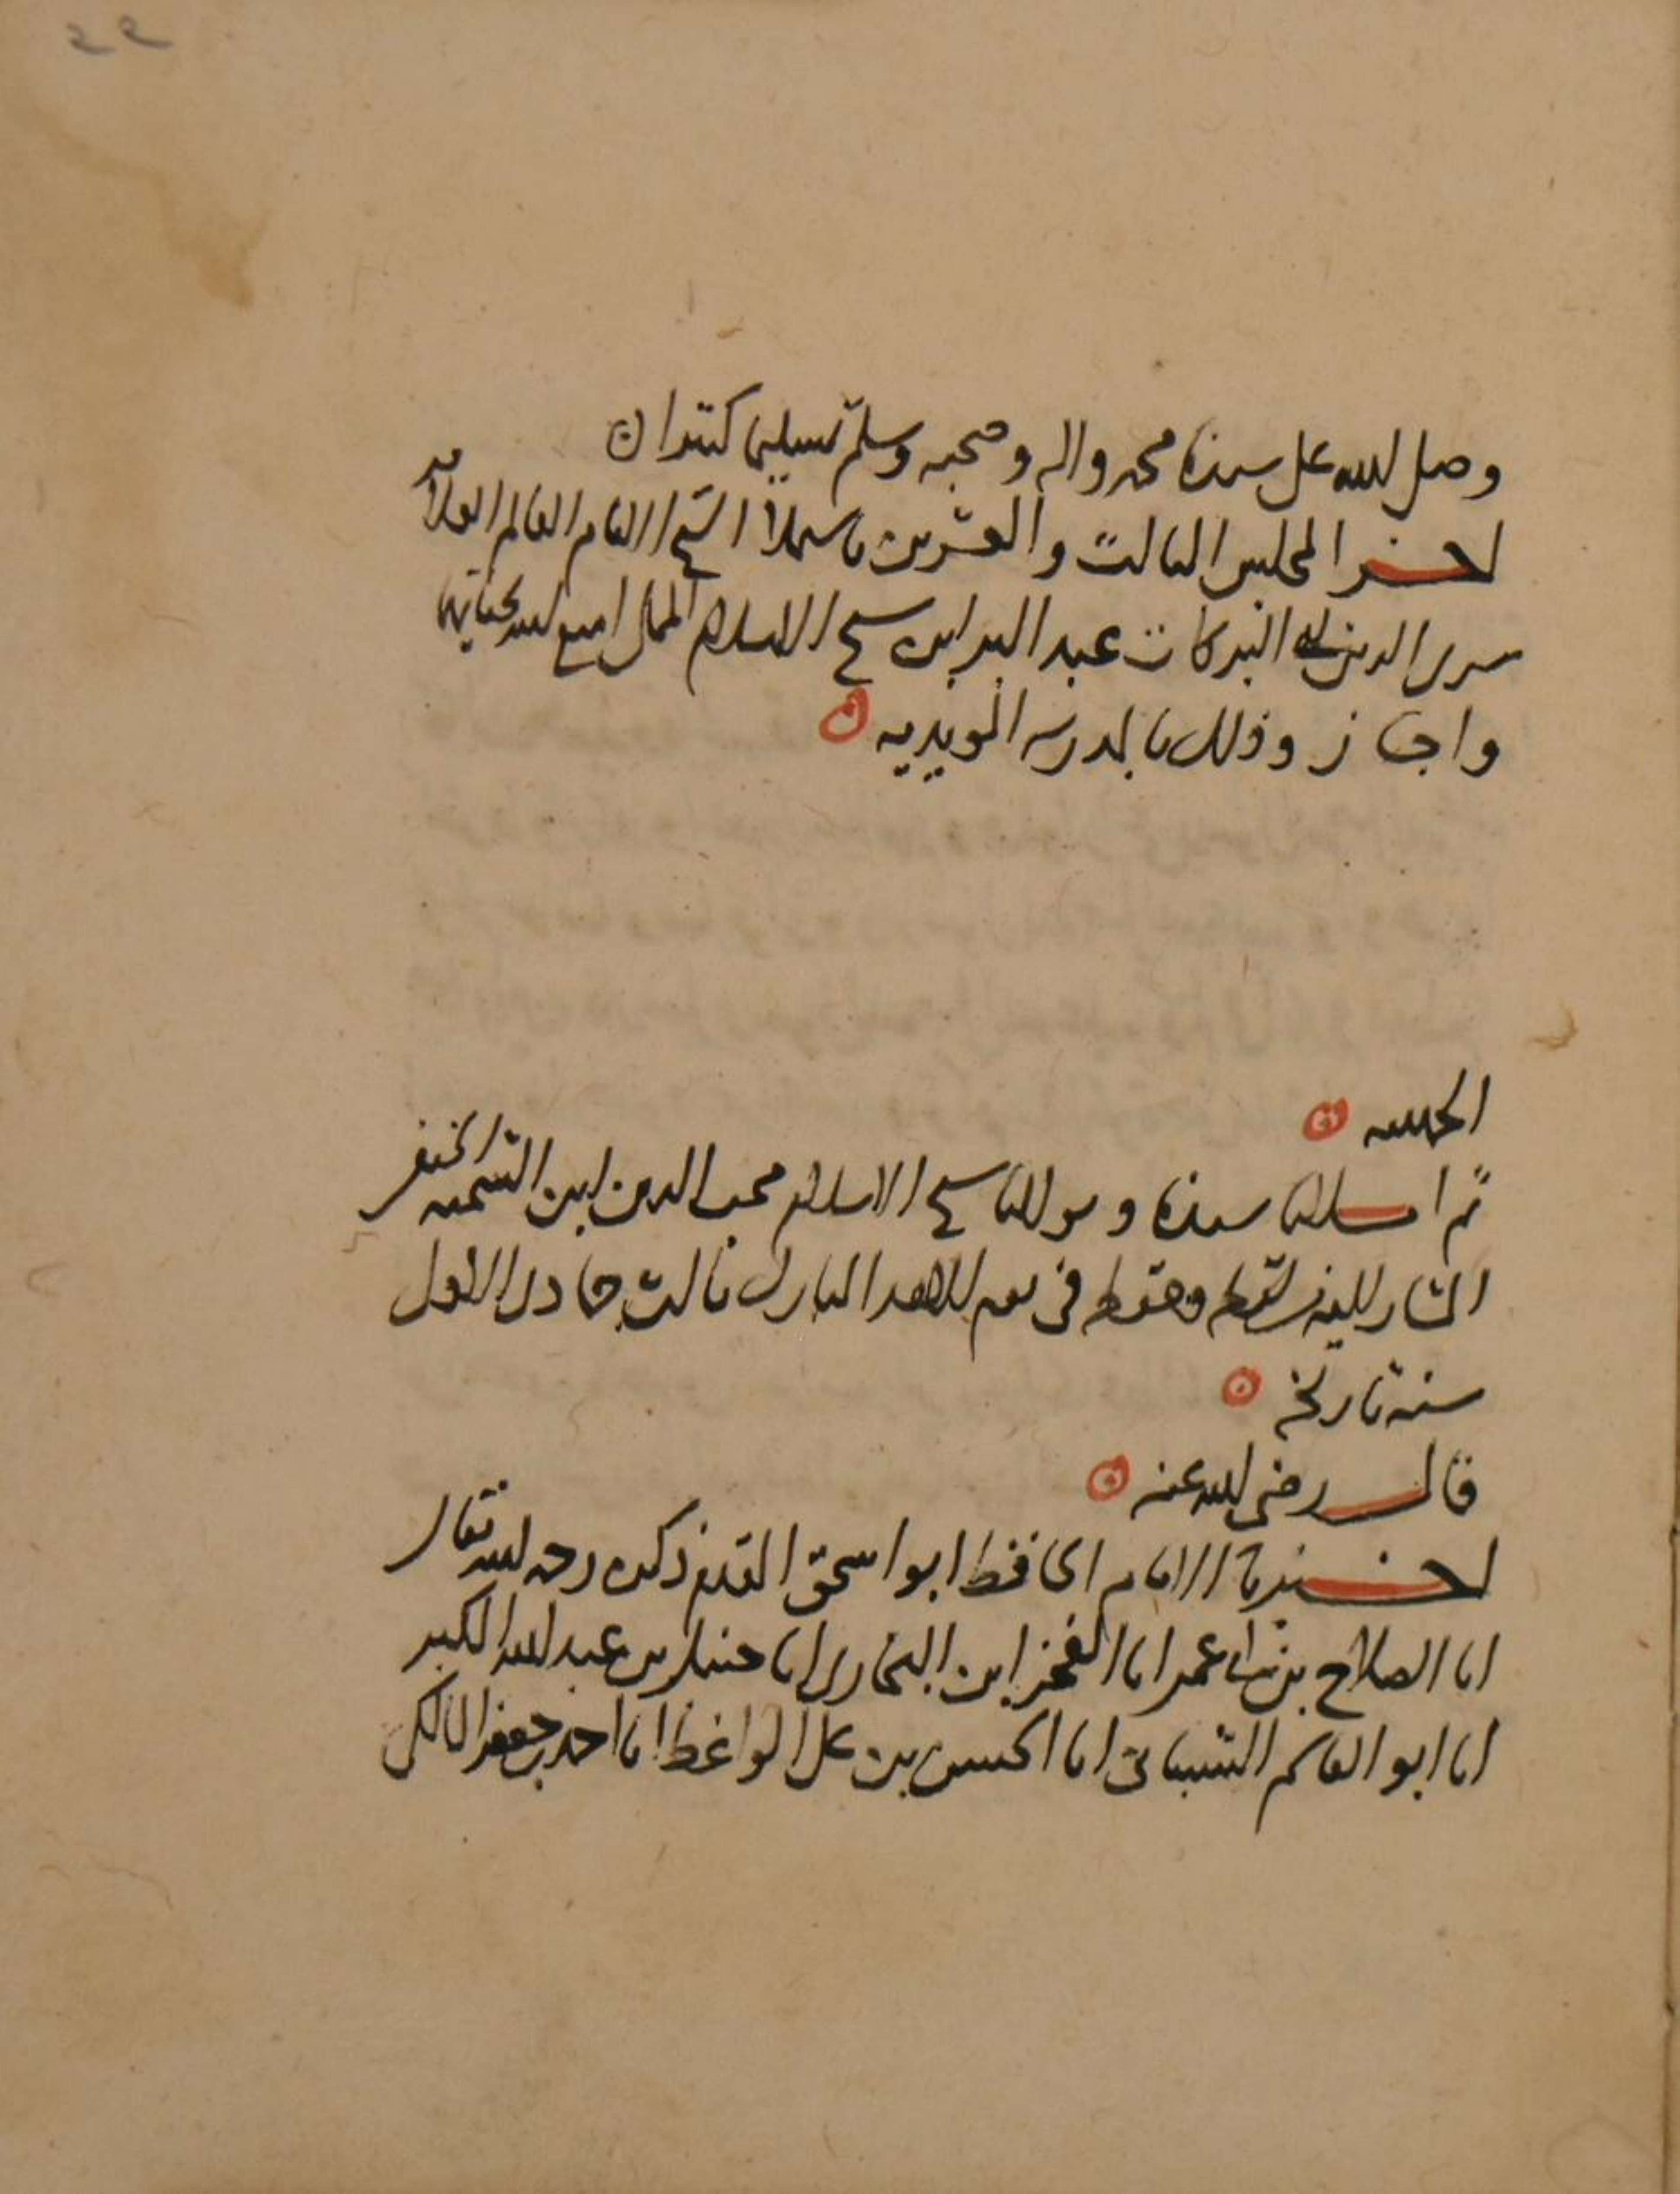 ٢٢
وصلى الله على سيدنا محمد واله وصحبه وسلم تسليما كثيرا
اخر المجلس الثالث والعشرين باستملا الشيخ الامام العالم العلامه
سرى الدين ابى البركات عبد البر ابن شيخ الاسلام المملى امتع الله بحياتهما
واجاز وذلك بالمدرسه المويديه
الحمد لله
ثم املانا سيدنا ومولانا شيخ الاسلام محب الدين ابن الشحنه الحنفى
المشار اليه فى يوم الاحد المبارك ثالث جمادى الاول
سنة تاريخه
قال رضى الله عنه
اخبرنا الامام الحافظ ابو اسحق المقدم ذكره رحمه الله تعالى
انا الصلاح بن ابى عمر انا الفخر ابن البخارى انا حنبل بن عبد الله الكبير
انا ابو القاسم الشيبانى انا الحسن بن على الواعظ انا احمد بن جعفر المالكى